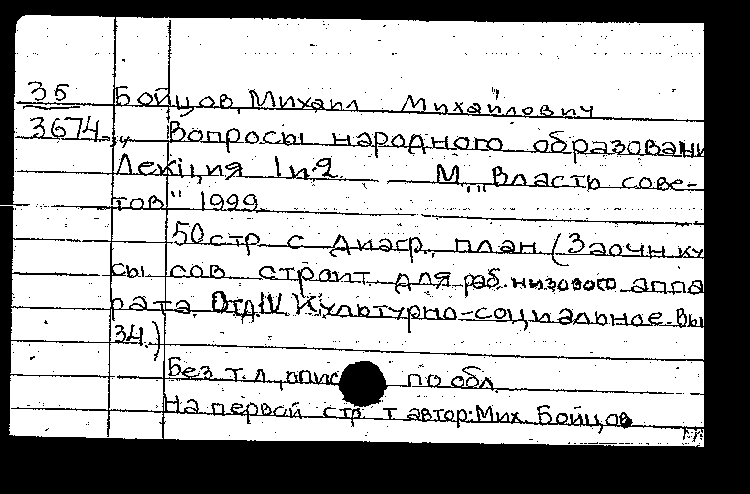 35 Бойцов, Михаил Михайлович
3674-34 Вопросы народного образовани
Лекция 1 и 2. — М., „Власть сове-
тов" 1929
50 стр с диагр., план (Заочн ку
сы сов строит для раб. низового аппа
рата Отд IV Культурно-социальное. Вы
34.)
Без т. л., опис по обл
На первой стр т автор: Мих. Бойцов